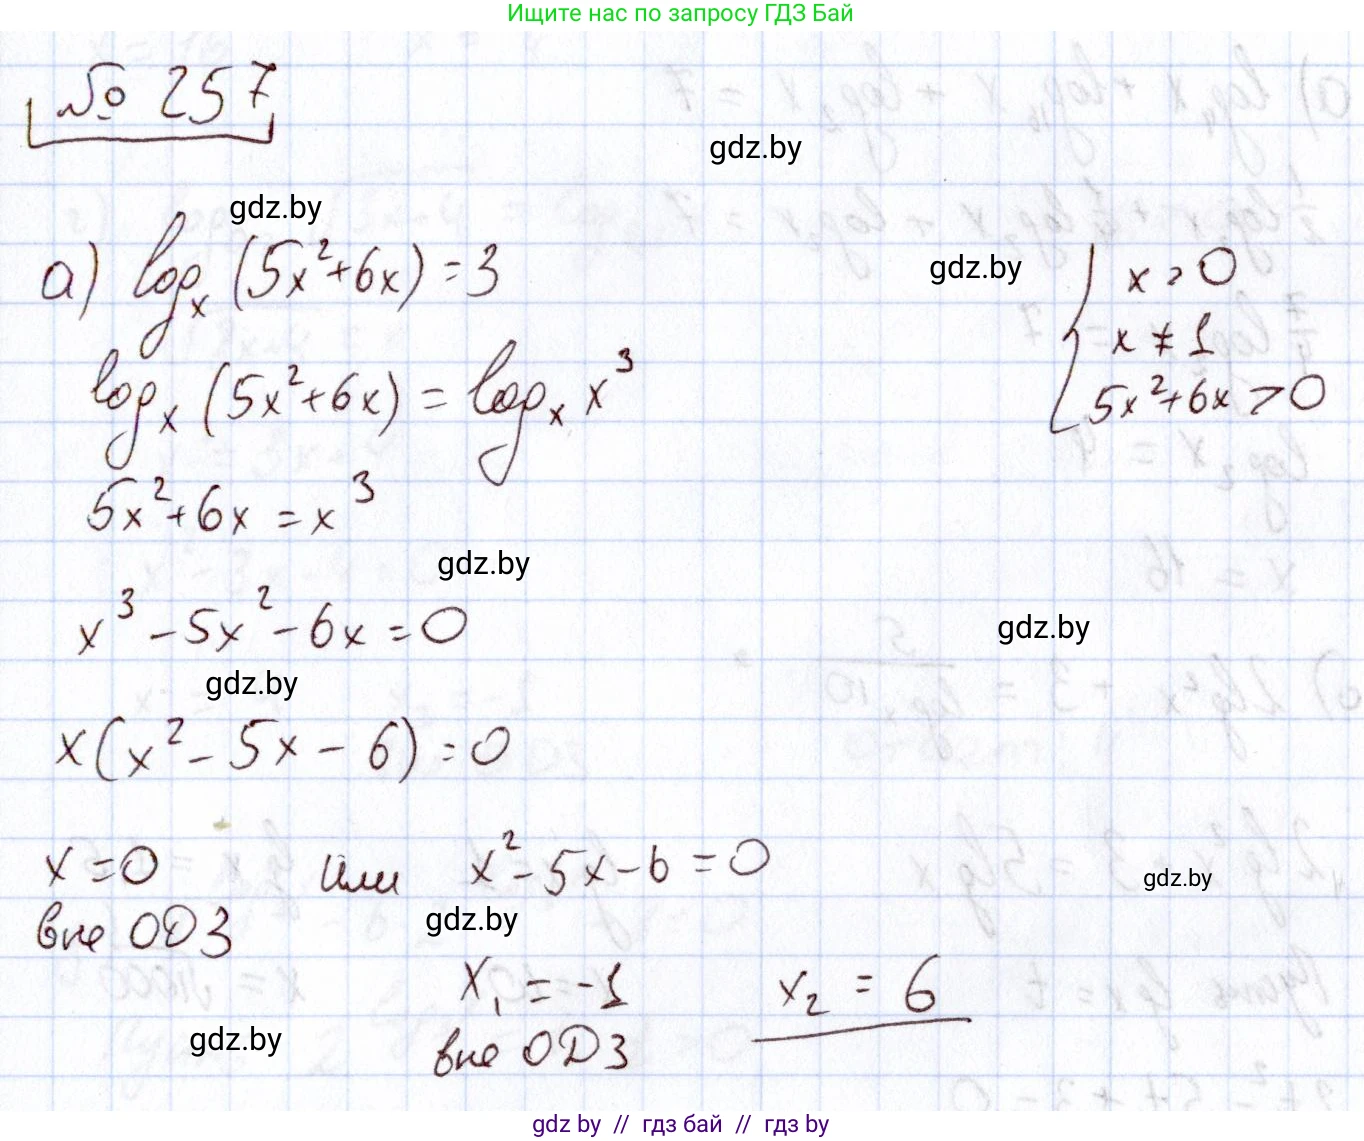 Ищите нас по запросу ГДЗ Бай
№ 257
gdz.by
gdz.by
а) log_x (5x²+6x) = 3
gdz.by
x > 0
x ≠ 1
5x²+6x > 0
log_x (5x²+6x) = log_x x³
5x²+6x = x³
gdz.by
x³ - 5x² - 6x = 0
gdz.by
gdz.by
x(x² - 5x - 6) = 0
x = 0 или x² - 5x - 6 = 0
gdz.by
вне ОДЗ
gdz.by
x₁ = -1 x₂ = 6
вне ОДЗ
gdz.by
gdz.by // гдз бай // гдз by